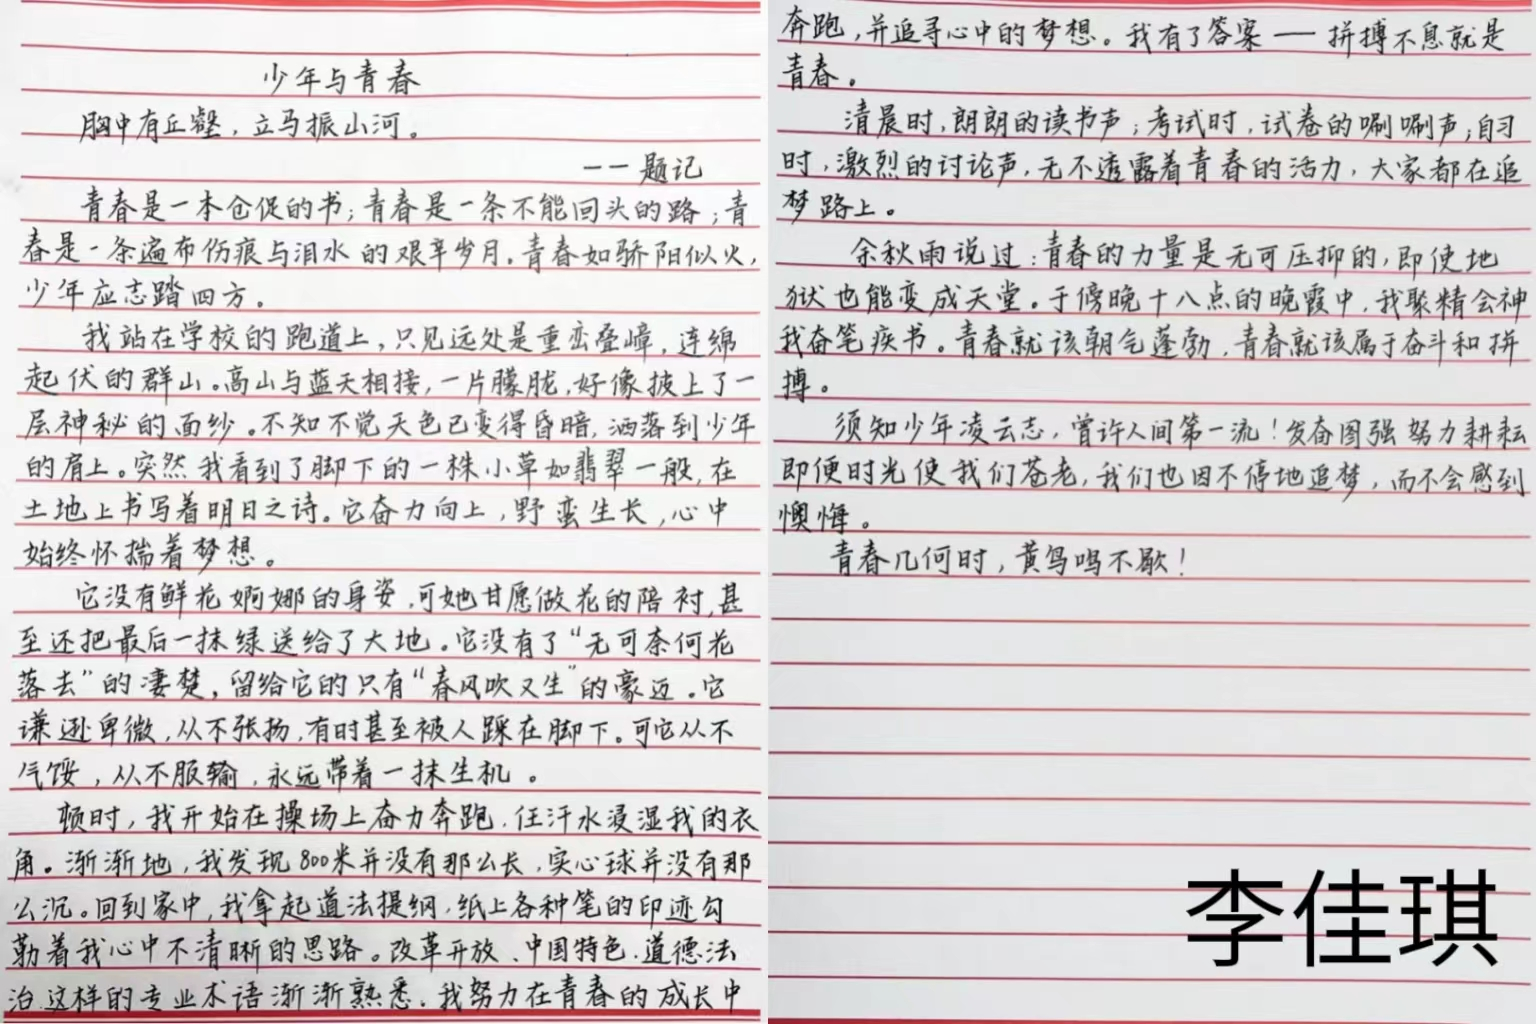 少年与青春
胸中有丘壑，立马振山河。
——题记
青春是一本仓促的书；青春是一条不能回头的路；青
春是一条遍布伤痕与泪水的艰辛岁月。青春如骄阳似火，
少年应志踏四方。
我站在学校的跑道上，只见远处是重峦叠嶂，连绵
起伏的群山。高山与蓝天相接，一片朦胧，好像披上了一
层神秘的面纱。不知不觉天色已变得昏暗，洒落到少年
的肩上。突然我看到了脚下的一株小草如翡翠一般，在
土地上书写着明日之诗。它奋力向上，野蛮生长，心中
始终怀揣着梦想。
它没有鲜花婀娜的身姿，可她甘愿做花的陪衬，甚
至还把最后一抹绿送给了大地。它没有了“无可奈何花
落去”的凄楚，留给它的只有“春风吹又生”的豪迈。它
谦逊卑微，从不张扬，有时甚至被人踩在脚下。可它从不
气馁，从不服输，永远带着一抹生机。
顿时，我开始在操场上奋力奔跑，任汗水浸湿我的衣
角。渐渐地，我发现800米并没有那么长，实心球并没有那
么沉。回到家中，我拿起道法提纲，纸上各种笔的印迹勾
勒着我心中不清晰的思路。改革开放、中国特色、道德法
治这样的专业术语渐渐熟悉，我努力在青春的成长中
奔跑，并追寻心中的梦想。我有了答案——拼搏不息就是
青春。
清晨时，朗朗的读书声；考试时，试卷的唰唰声；自习
时，激烈的讨论声，无不透露着青春的活力，大家都在追
梦路上。
余秋雨说过：青春的力量是无可压抑的，即使地
狱也能变成天堂。于傍晚十八点的晚霞中，我聚精会神
我奋笔疾书。青春就该朝气蓬勃，青春就该属于奋斗和拼
搏。
须知少年凌云志，曾许人间第一流！发奋图强努力耕耘
即便时光使我们苍老，我们也因不停地追梦，而不会感到
懊悔。
青春几何时，黄鸟鸣不歇！
李佳琪